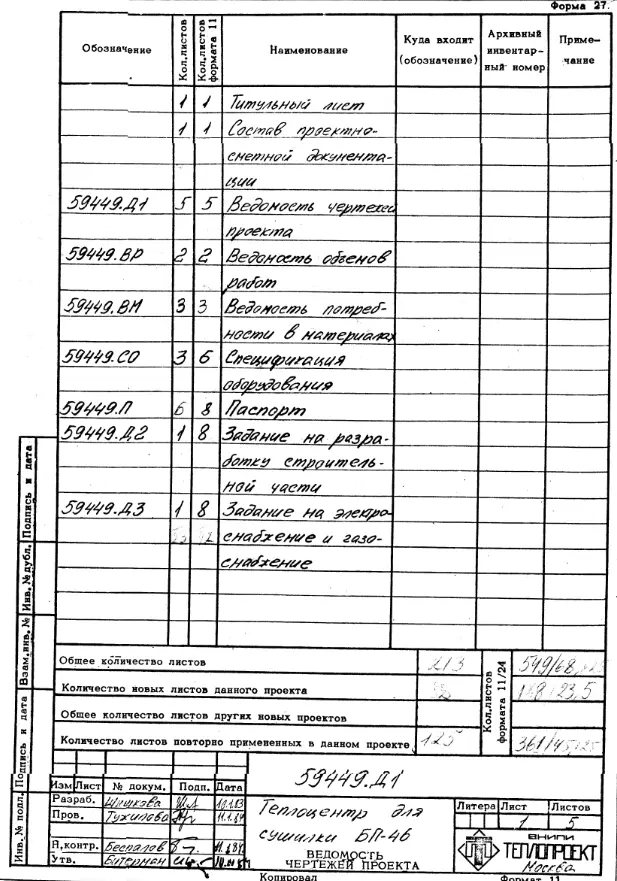 Форма 27.
Обозначение Кол.листов Кол.листов формата 11 Наименование Куда входит (обозначение) Архивный инвентар-ный номер Приме-чание
1 1 Титульный лист
1 1 Состав проектно-
сметной документа-
ции
59449.Д1 5 5 Ведомость чертежей
проекта
59449.ВР 2 2 Ведомость объемов
работ
59449.ВМ 3 3 Ведомость потреб-
ности в материалах
59449.СО 3 6 Спецификация
оборудования
59449.П 6 8 Паспорт
59449.Д2 1 8 Задание на разра-
ботку строитель-
ной части
59449.Д3 1 8 Задание на элекро-
снабжение и газо-
снабжение
Общее количество листов 213
Количество новых листов данного проекта
Общее количество листов других новых проектов
Количество листов повторно примененных в данном проекте 125
Кол.листов формата 11/24
Инв.№ подл. Подпись и дата Взам.инв.№ Инв.№дубл. Подпись и дата
59449.Д1
Изм Лист № докум. Подп. Дата
Разраб. Шишкова
Пров. Тухилова
Н.контр. Беспалов
Утв. Битерман
Теплоцентр для
сушилки БП-46
ВЕДОМОСТЬ
ЧЕРТЕЖЕЙ ПРОЕКТА
Литера Лист Листов
1 5
ВНИПИ
ТЕПЛОПРОЕКТ
Москва
Копировал Формат 11